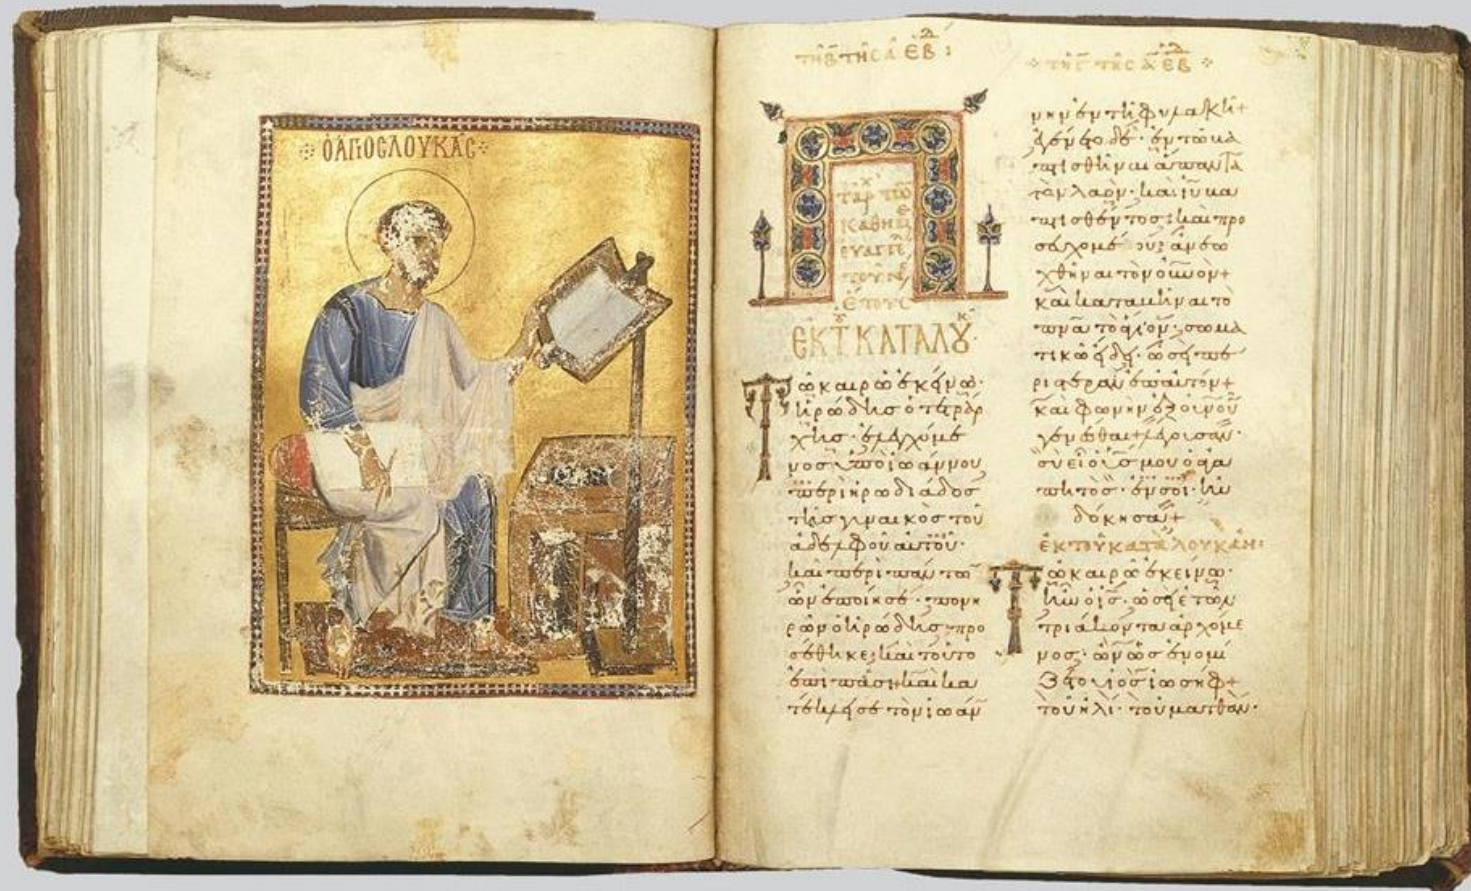 Ὁ ἍΓΙΟC ΛΟΥΚᾶC
ΤΗ Β̄ ΤΗC Α ΕΒΔ :
ΚΑΘΗ
ΕΚ Τ ΚΑΤΑ ΛΟΥΚ
Τῶ καιρῶ ἐκείνω·
ἡρώδης ὁ τετράρ
χης· ἐλεγχόμε
νος ὑπὸ ἰωάννου
περὶ ἡρωδιάδος
τῆς γυναικὸς τοῦ
ἀδελφοῦ αὐτοῦ·
καὶ περὶ πάντων
ὧν ἐποίησε· πονη
ρῶν ὁ ἡρώδης· προ
σέθηκε καὶ τοῦτο
ἐπὶ πᾶσι· καὶ κα
τέκλεισε τὸν ἰωάν
ΤΗ Γ̄ ΤΗC Α ΕΒΔ
νην ἐν τῆ φυλακῆ+
ἐγένετο δὲ· ἐν τῶ βα
πτισθῆναι ἅπαντα
τὸν λαὸν· καὶ ῑῡ βα
πτισθέντος· καὶ προ
σευχομένου· ἀνεω
χθῆναι τὸν οὐνὸν+
καὶ καταβῆναι τὸ
πνᾶ τὸ ἅγιον· σωμα
τικῶ εἴδει· ὡσεὶ πε
ριστερὰν ἐπ' αὐτὸν+
καὶ φωνὴν ἐξ οὐνοῦ
γενέσθαι λέγουσαν·
σὺ εἶ ὁ ῡς̄ μου ὁ ἀγα
πητὸς· ἐν σοὶ ηὐ
δόκησα+
ἐκ τοῦ κατὰ λουκᾶν:
Τῶ καιρῶ ἐκείνω·
ἦν ὁ ῑς̄· ὡσεὶ ἐτῶν
τριάκοντα ἀρχόμε
νος· ὢν ὡς ἐνομί
ζετο υἱὸς ἰωσήφ+
τοῦ ἡλί· τοῦ ματθάν·